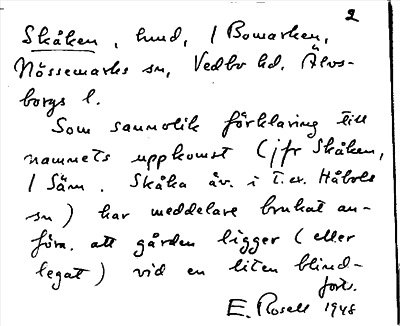 2
Skåken, hmd, / Bomarken,
Nössemarks sn, Vedbo hd. Älvs-
borgs l.
Som sannolik förklaring till
namnets uppkomst (jfr Skåken,
/ Säm. Skåka äv. i t.ex. Håbols
sn) har meddelare brukat an-
föra. att gården ligger (eller
legat) vid en liten blind-
fort.
E. Rosell 1948